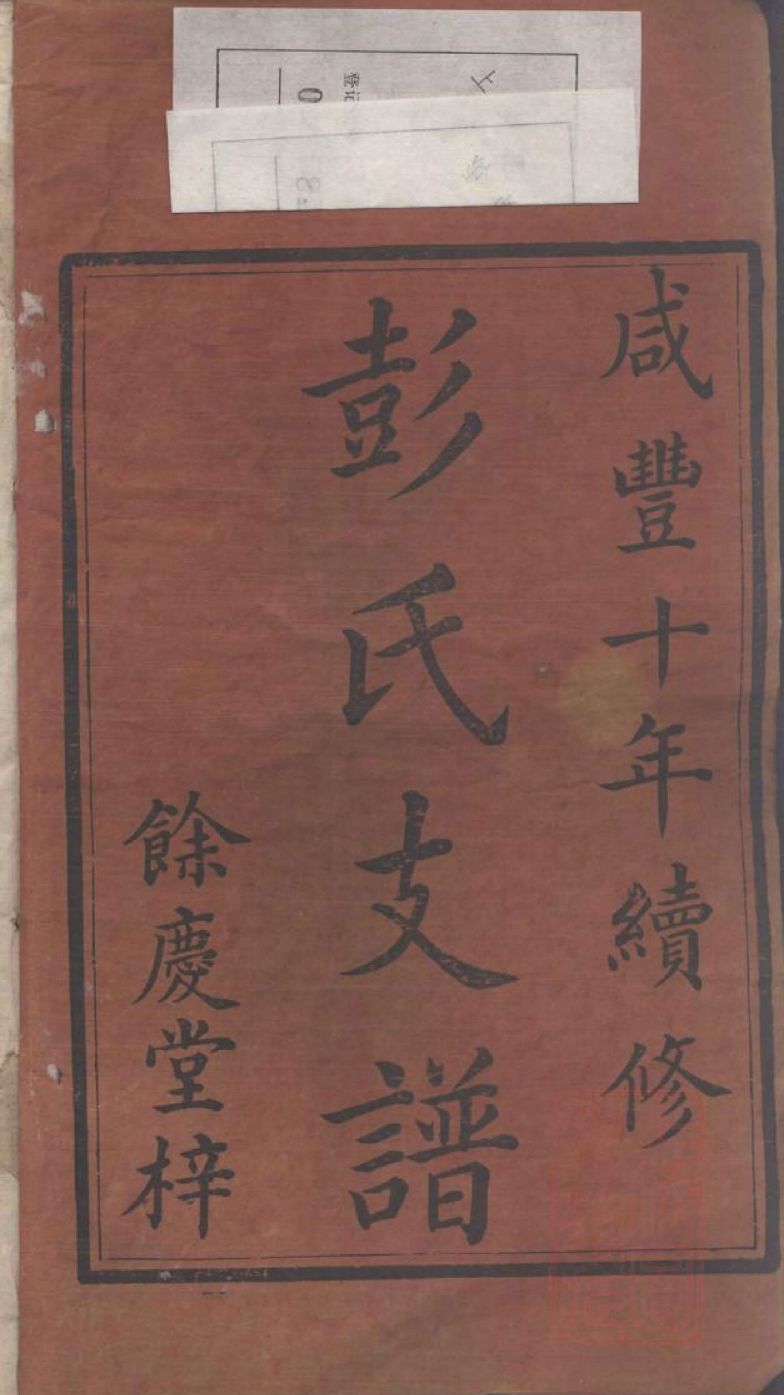 咸豐十年續修
彭氏支譜
餘慶堂梓
登记
0